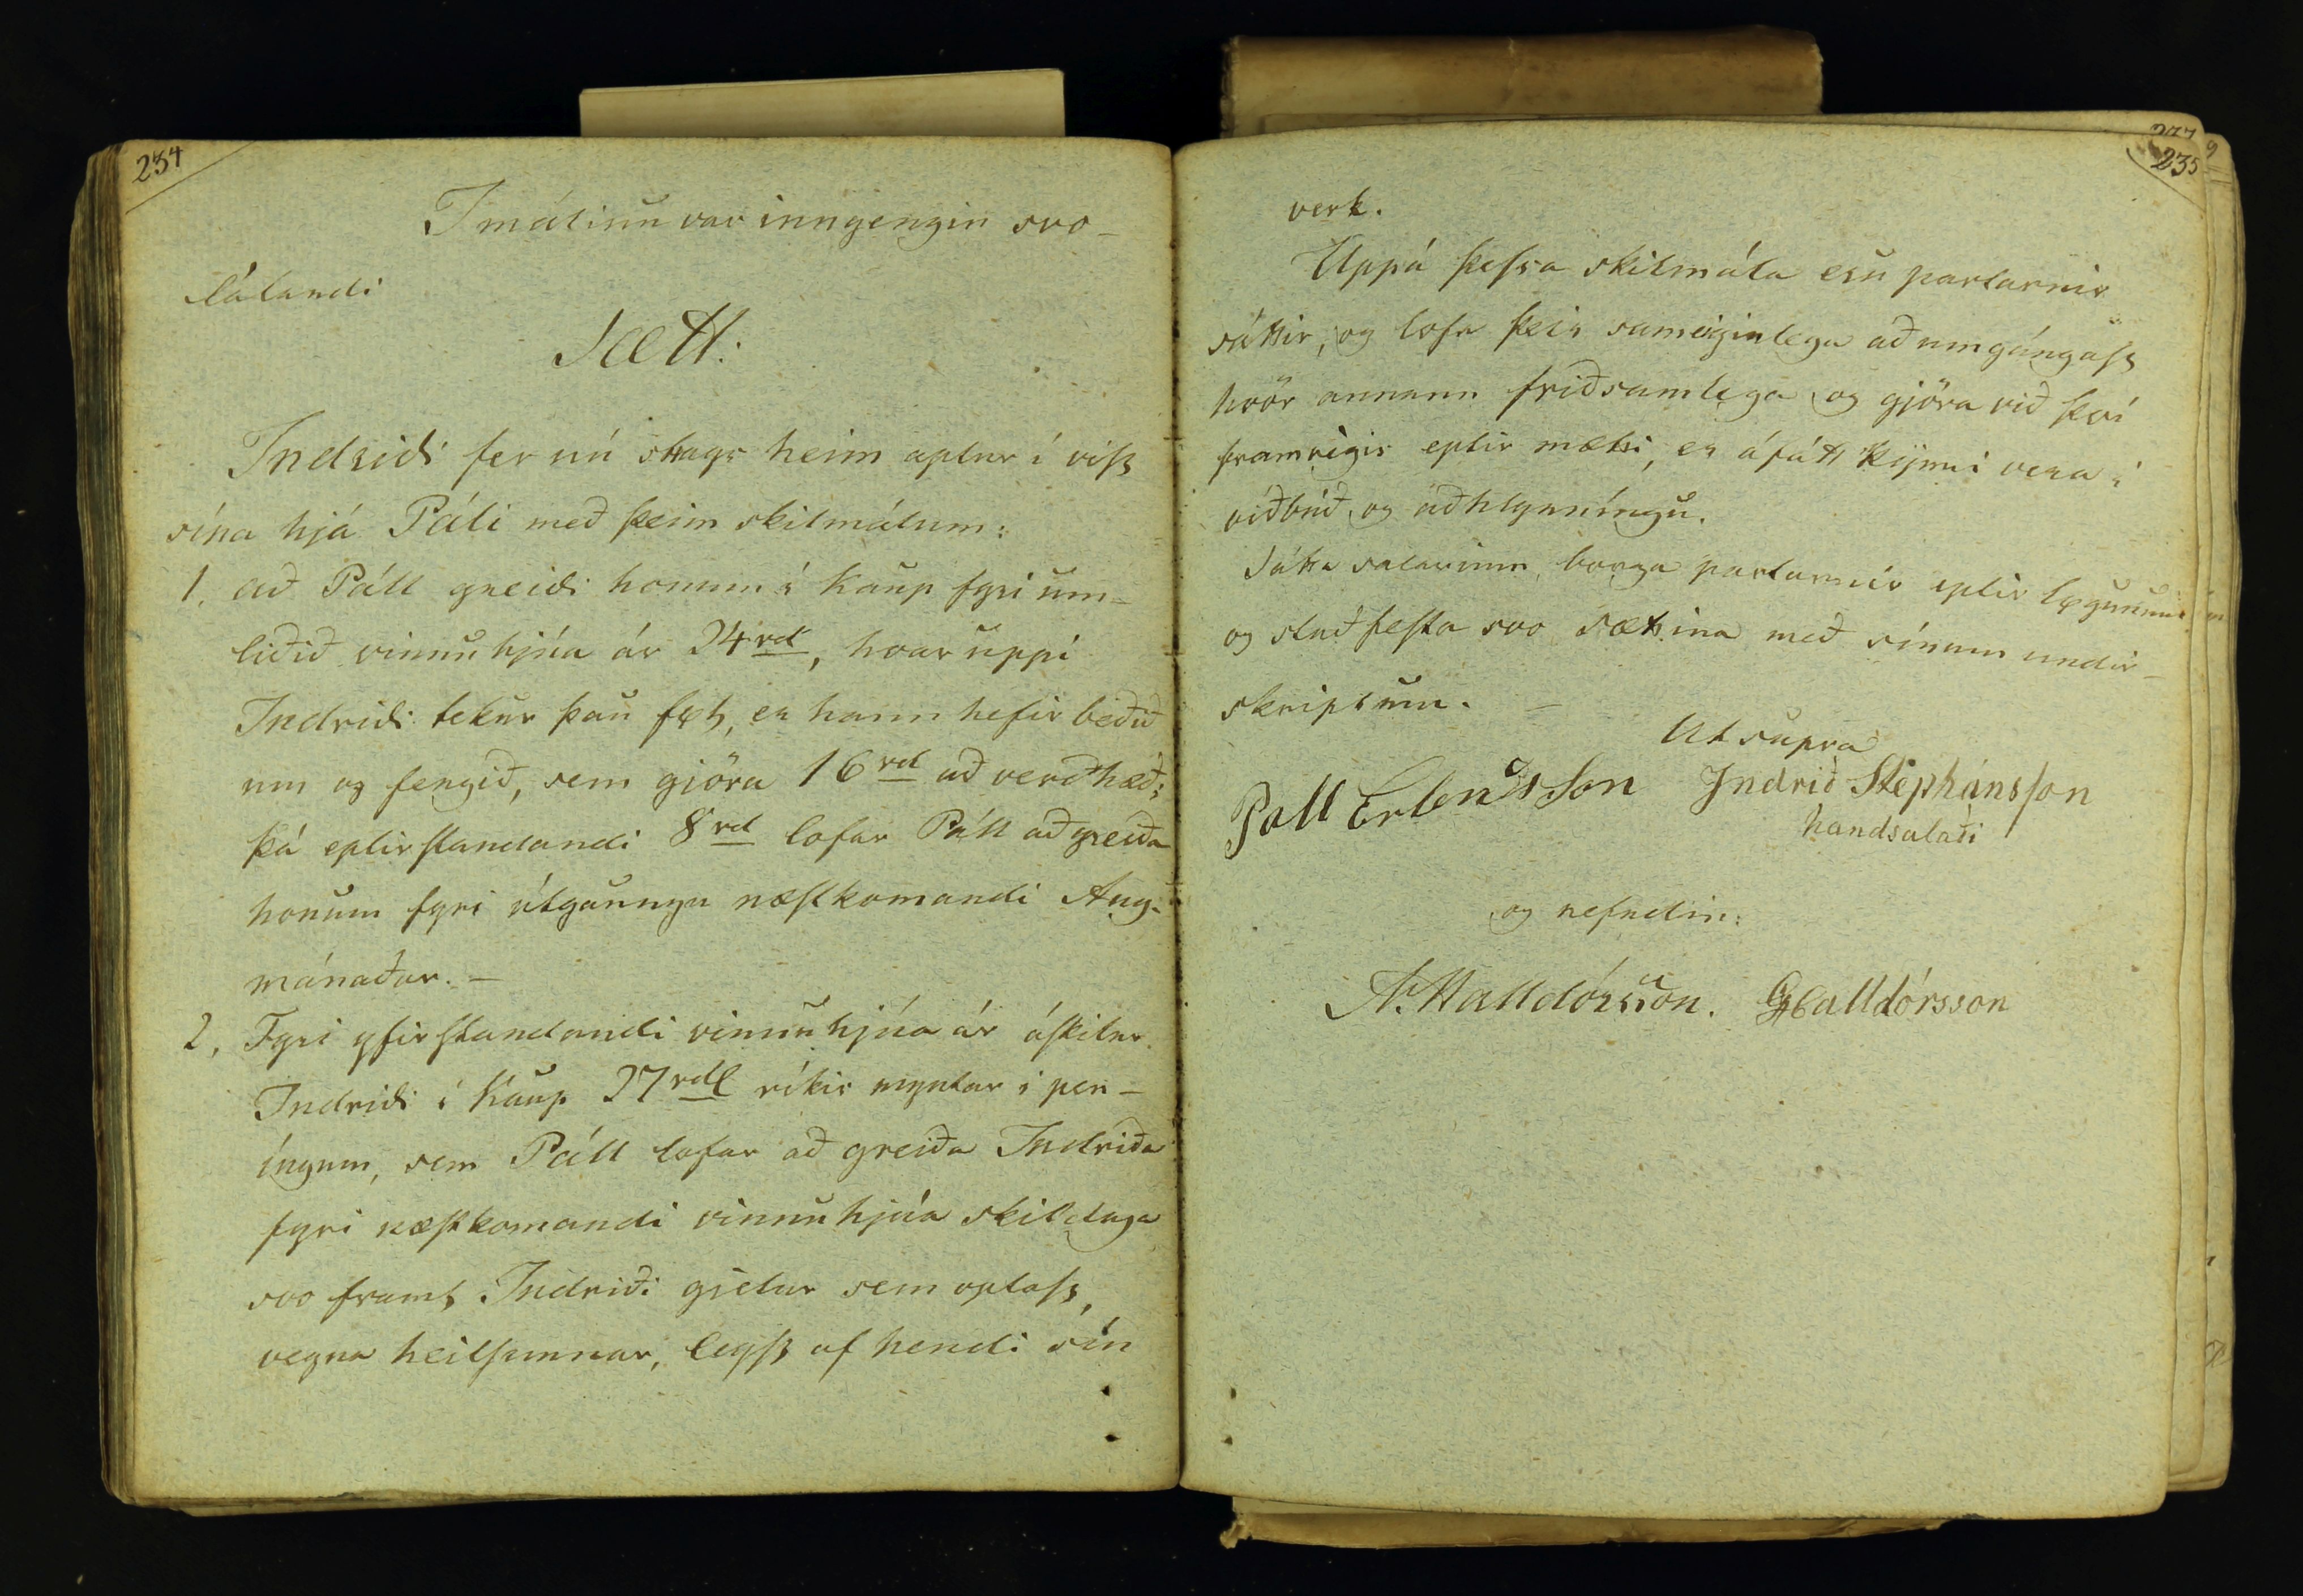 234
I málinu var inngengin svo-
látandi
Sætt:
Indriði fer nú strags heim aptur í vist
sína hjá Páli með þeim skilmálum:
1. að Páll greiði honum í kaup fyri um-
liðið vinnuhjúa ár 24 rd, hvar uppí
Indriði tekur þau föt, er hann hefir beðið
um og fengið, sem gjöra 16 rd að verðhæð;
þá eptirstandandi 8 rd lofar Páll að greiða
honum fyri útgaungu næstkomandi Aug.
mánaðar. –
2, Fyri yfirstandandi vinnuhjúa ár áskilur
Indriði í kaup 27 rdl ríkis myntar í pen-
íngum, sem Páll lofar að greiða Indriða
fyri næstkomandi vinnuhjúa skildaga
svo framt Indriði gietur sem optast,
vegna heilsunnar, leyst af hendi sín
235
verk.
Uppá þessa skilmála eru partarnir
sáttir, og lofa þeir sameiginlega að umgángast
hvör annann friðsamlega og gjöra við því
framveigis eptir mætti, er áfátt kynni vera í
viðbúð og aðhlynníngu.
Sátta salarium borga partarnir eptir lögunum
og staðfesta svo sættina með sínum undir-
skriptum. –
Ut supra
Pall Erlends Son Indrið Stephánsson
handsalaði
og nefndin:
A. Halldórsson. G Halldórsson